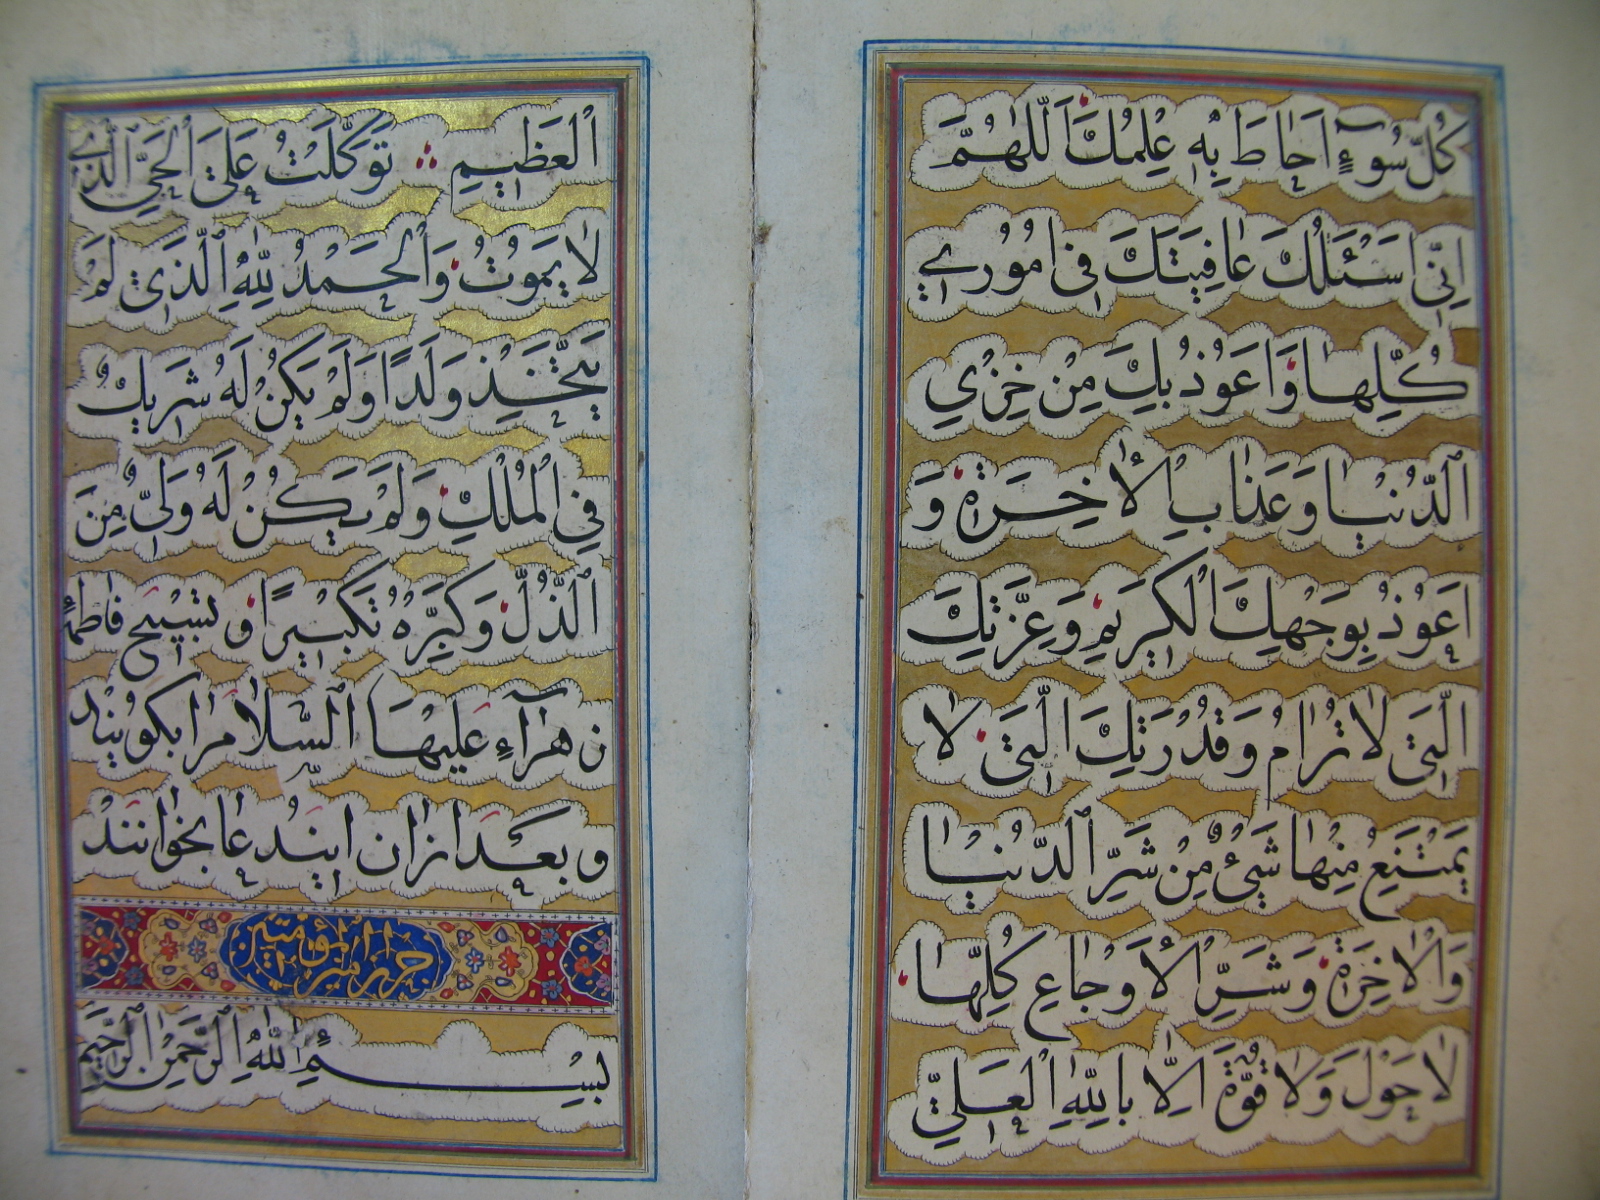 كُلِّ سُوٓءٍ اَحٰاطَ بِهٖ عِلْمُكَ اَللّٰهُمَّ
اِنّٖي اَسْئَلُكَ عٰافِيَتَكَ فٖي اُمُورٖي
كُلِّهٰا وَاَعُوذُ بِكَ مِنْ خِزْيِ
الدُّنْيٰا وَعَذٰابِ الْاٰخِرَةِ وَ
اَعُوذُ بِوَجْهِكَ الْكَرٖيمِ وَعِزَّتِكَ
الَّتٖي لٰا تُرٰامُ وَقُدْرَتِكَ الَّتٖي لٰا
يَمْتَنِعُ مِنْهٰا شَيْءٌ مِنْ شَرِّ الدُّنْيٰا
وَالْاٰخِرَةِ وَشَرِّ الْاَوْجٰاعِ كُلِّهٰا
لٰا حَوْلَ وَلٰا قُوَّةَ اِلّٰا بِاللّٰهِ الْعَلِيِّ
الْعَظٖيمِ تَوَكَّلْتُ عَلَي الْحَيِّ الَّذٖي
لٰا يَمُوتُ وَالْحَمْدُ لِلّٰهِ الَّذٖي لَمْ
يَتَّخِذْ وَلَدًا وَلَمْ يَكُنْ لَهُ شَرٖيكٌ
فِي الْمُلْكِ وَلَمْ يَكُنْ لَهُ وَلِيٌّ مِنَ
الذُّلِّ وَكَبِّرْهُ تَكْبٖيرًا و تسبيح فاطمهٔ
زهرآء عليها السّلام را بكويند
و بعد از ان ايندعا بخوانند
حرز امير المؤمنين
بِسْمِ اللّٰهِ الرَّحْمٰنِ الرَّحٖيمِ